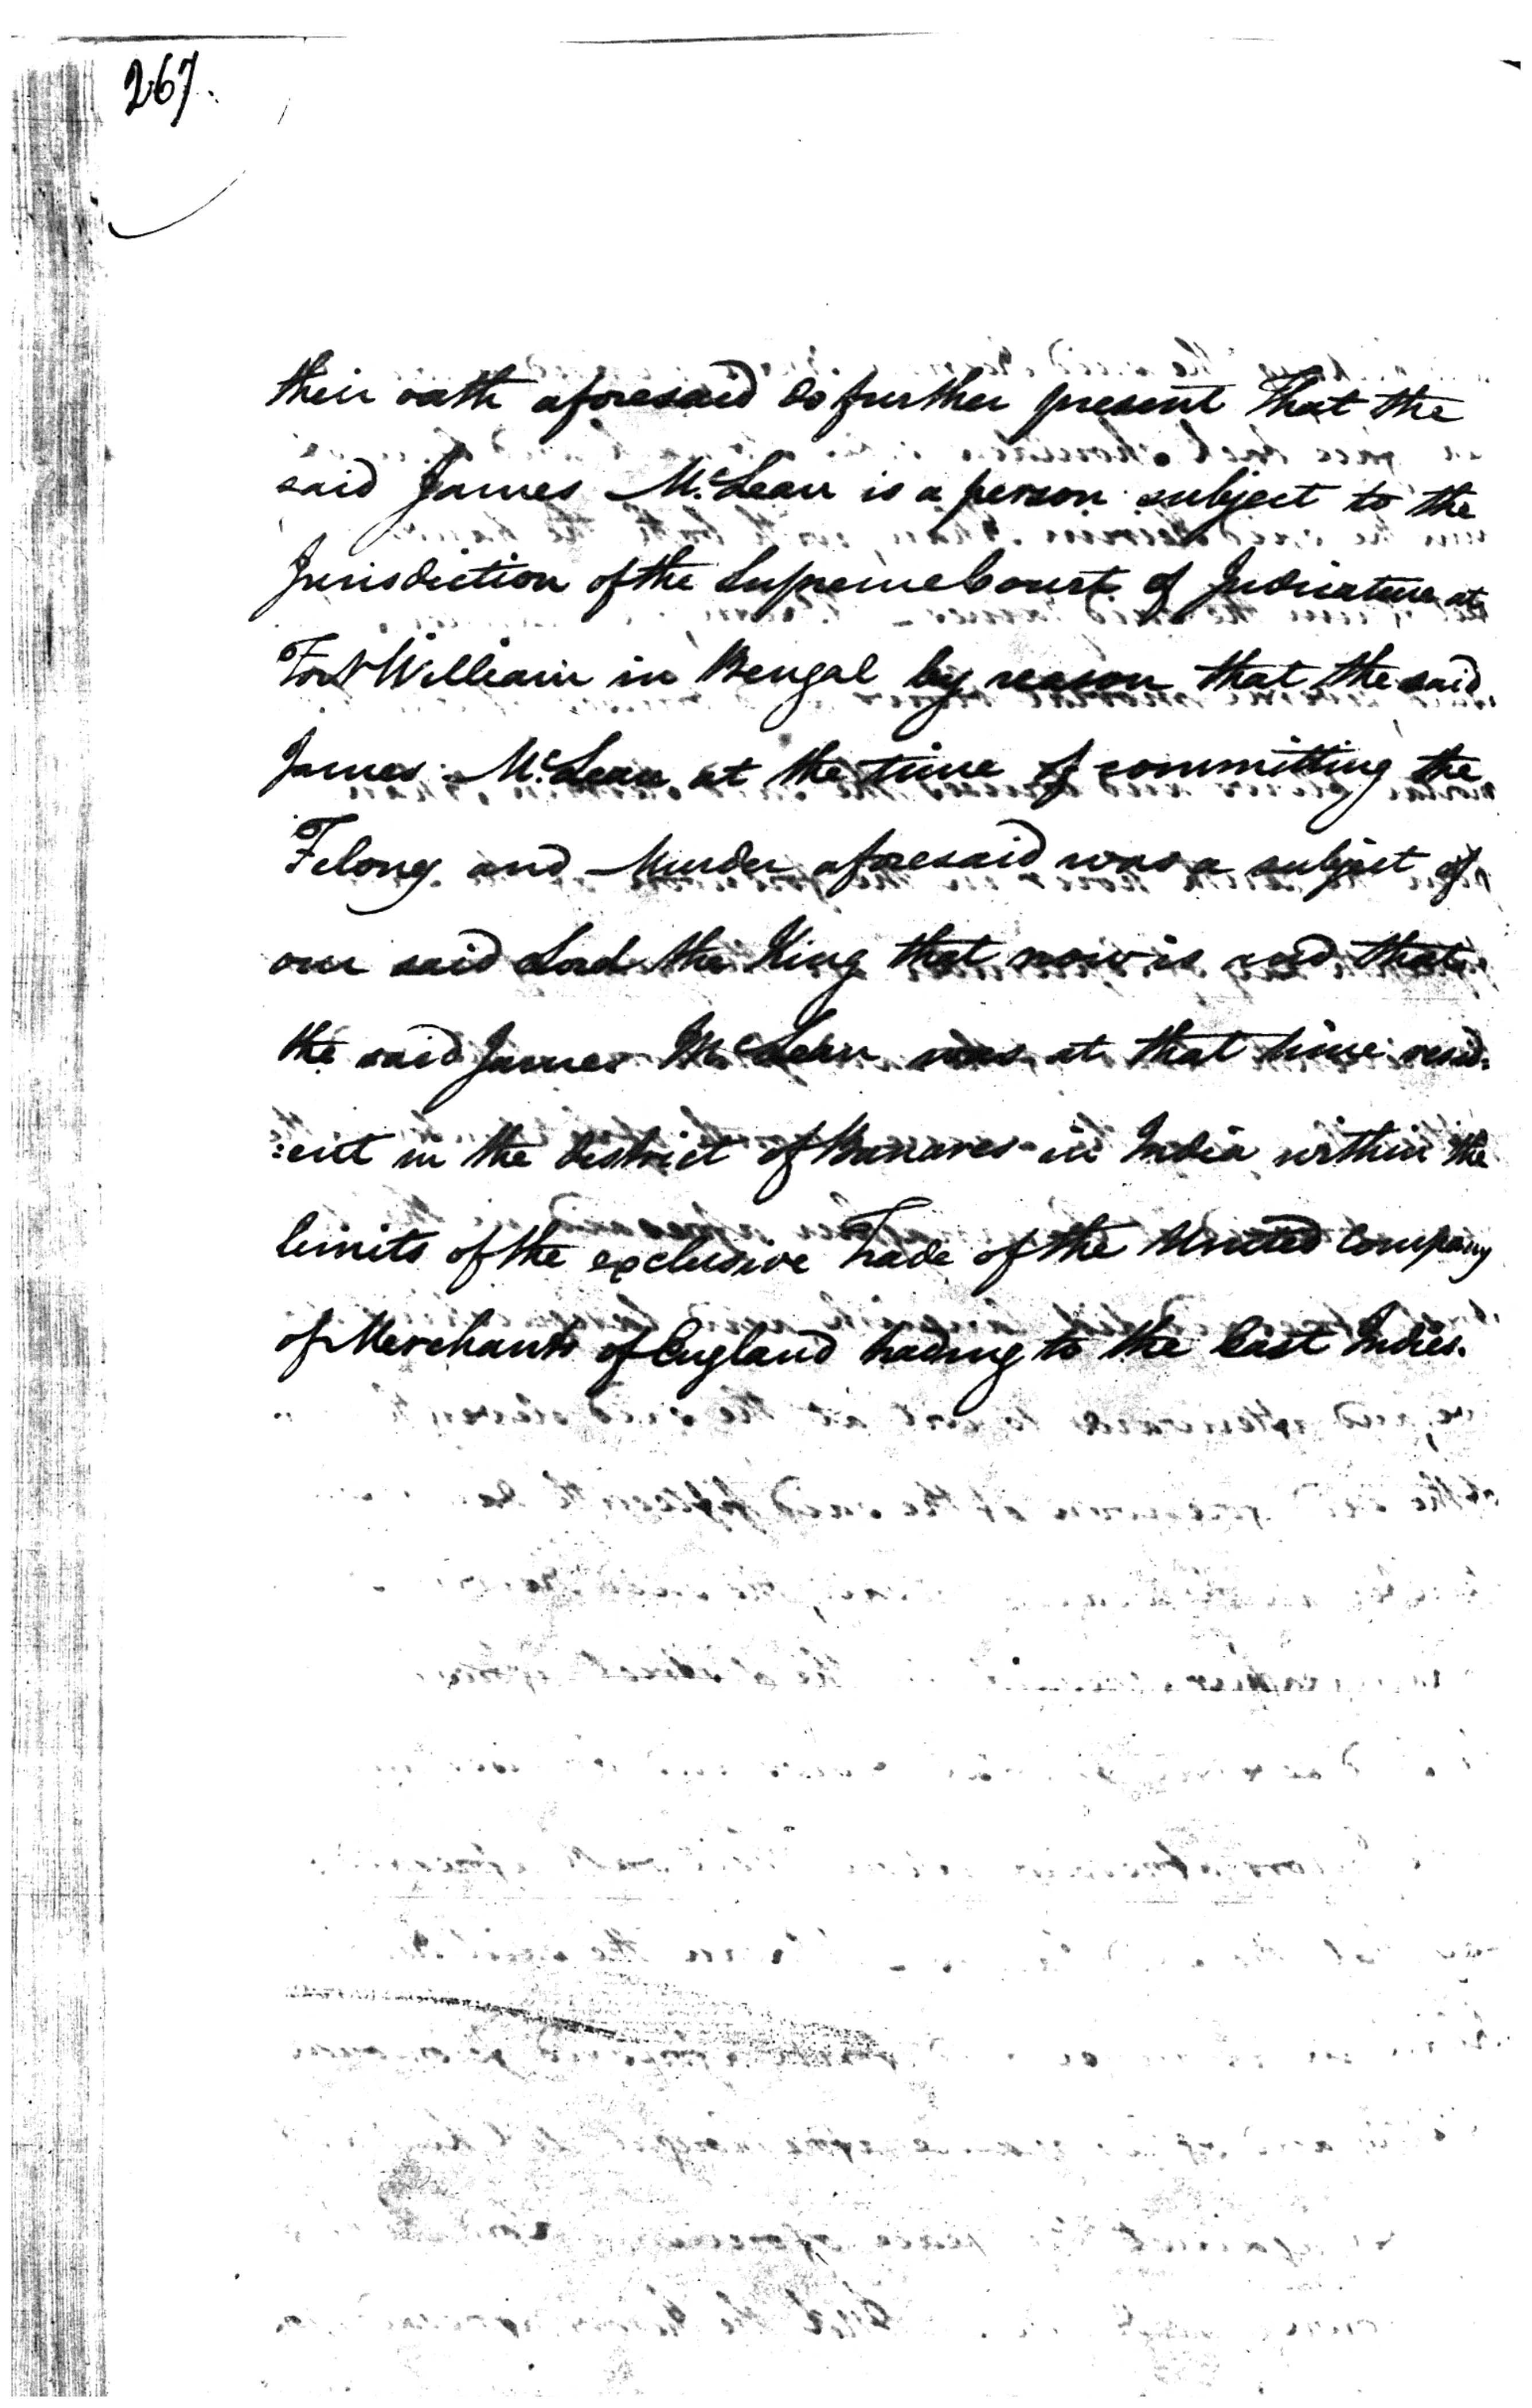 267.
their oath aforesaid do further present That the
said James McLean is a person subject to the
Jurisdiction of the Supreme Court of Judicature at
Fort William in Bengal by reason that the said
James McLean at the time of committing the
Felony and Murder aforesaid was a subject of
our said Lord the King that now is and that
the said James McLean was at that time resid:
:ent in the district of Banares in India within the
limits of the exclusive Trade of the United Company
of Merchants of England trading to the East Indies.